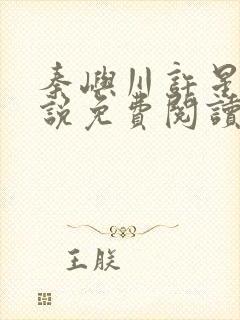 秦嶼川許星
說免費閱讀
王朕